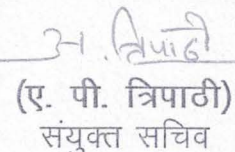 अ. त्रिपाठी
(ए. पी. त्रिपाठी)
संयुक्त सचिव